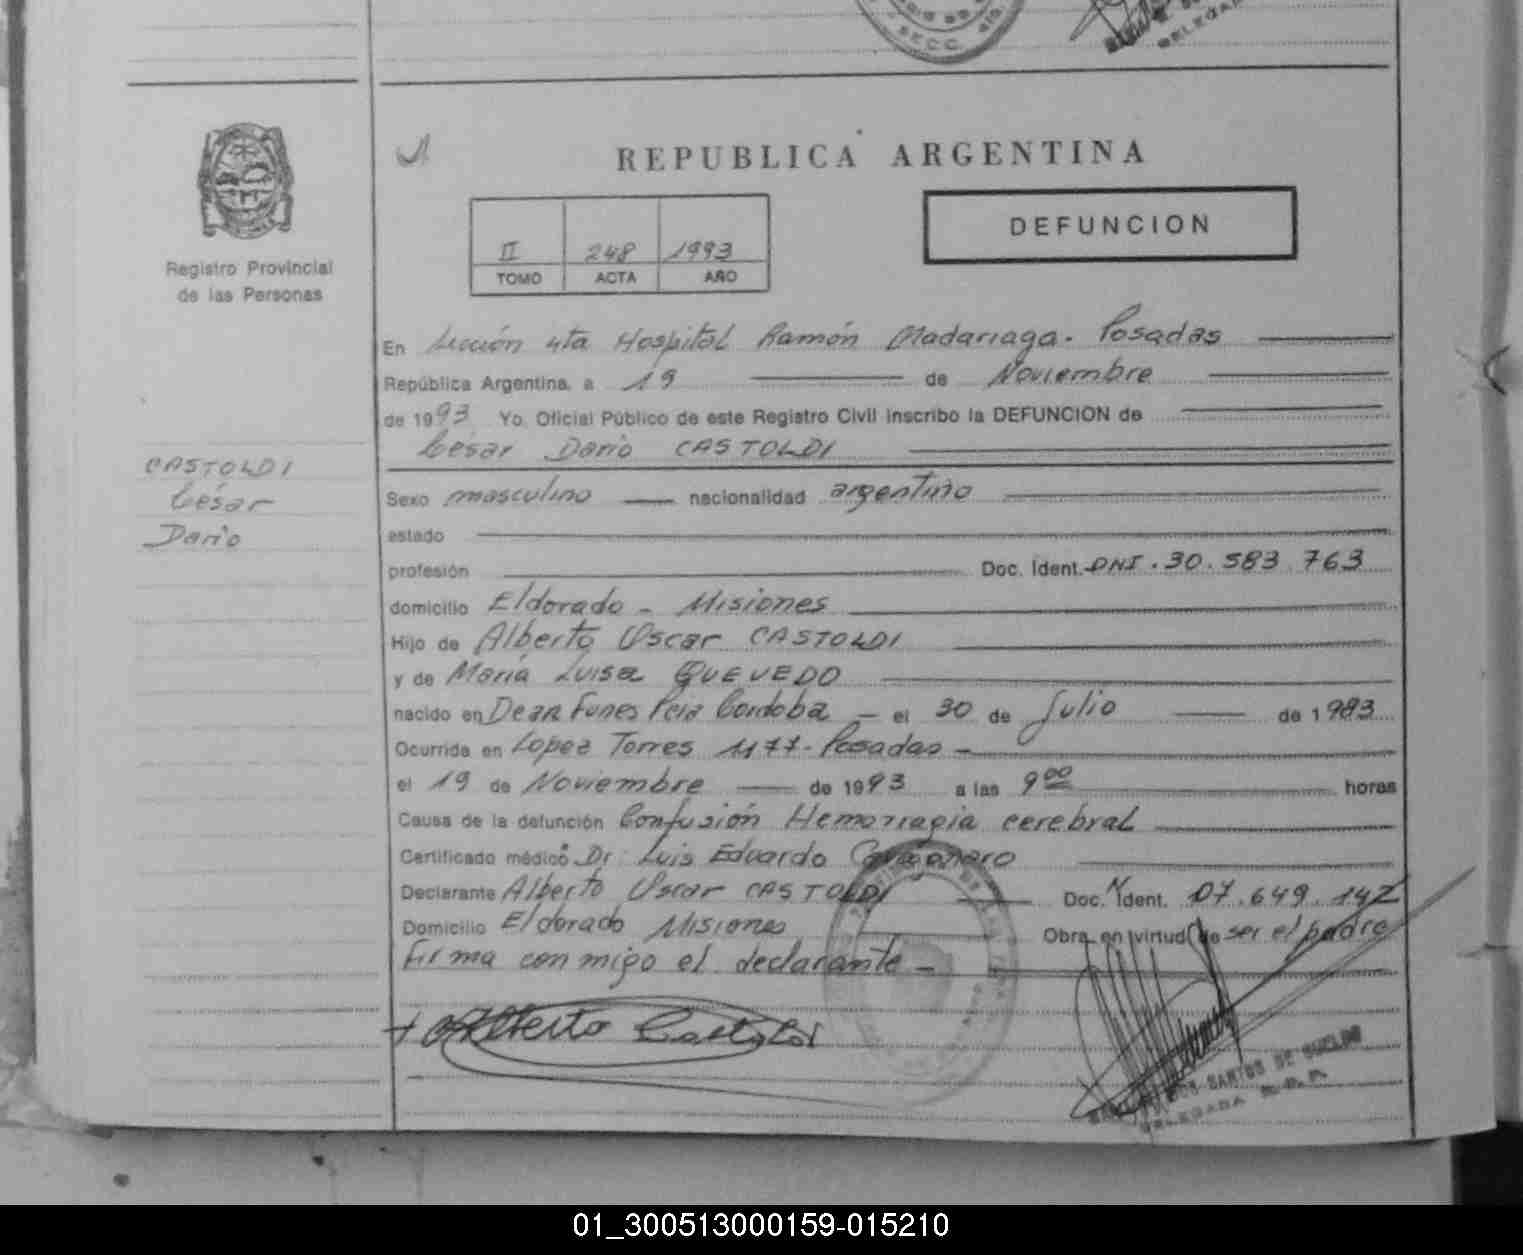 SECC. 4ta.
DELEGADA
REPUBLICA ARGENTINA
II 248 1993
TOMO ACTA AÑO
DEFUNCION
Registro Provincial
de las Personas
En Sección 4ta Hospital Ramón Madariaga. Posadas
República Argentina, a 19 de Noviembre
de 1993 Yo, Oficial Público de este Registro Civil inscribo la DEFUNCION de
César Darío CASTOLDI
CASTOLDI
César
Darío
Sexo masculino nacionalidad argentino
estado
profesión Doc. Ident. DNI. 30.583.763
domicilio Eldorado - Misiones
Hijo de Alberto Oscar CASTOLDI
y de María Luisa QUEVEDO
nacido en Dean Funes Pcia Cordoba - el 30 de Julio de 1983
Ocurrida en Lopez Torres 1177 - Posadas -
el 19 de Noviembre de 1993 a las 9 00 horas
Causa de la defunción Confusión Hemorragia cerebral
Certificado médico Dr. Luis Eduardo
Declarante Alberto Oscar CASTOLDI Doc. Ident. 07.649.142
Domicilio Eldorado Misiones Obra en virtud de ser el padre
Firma conmigo el declarante -
Alberto Castoldi
SANTOS DE
DELEGADA R. P. P.
01_300513000159-015210